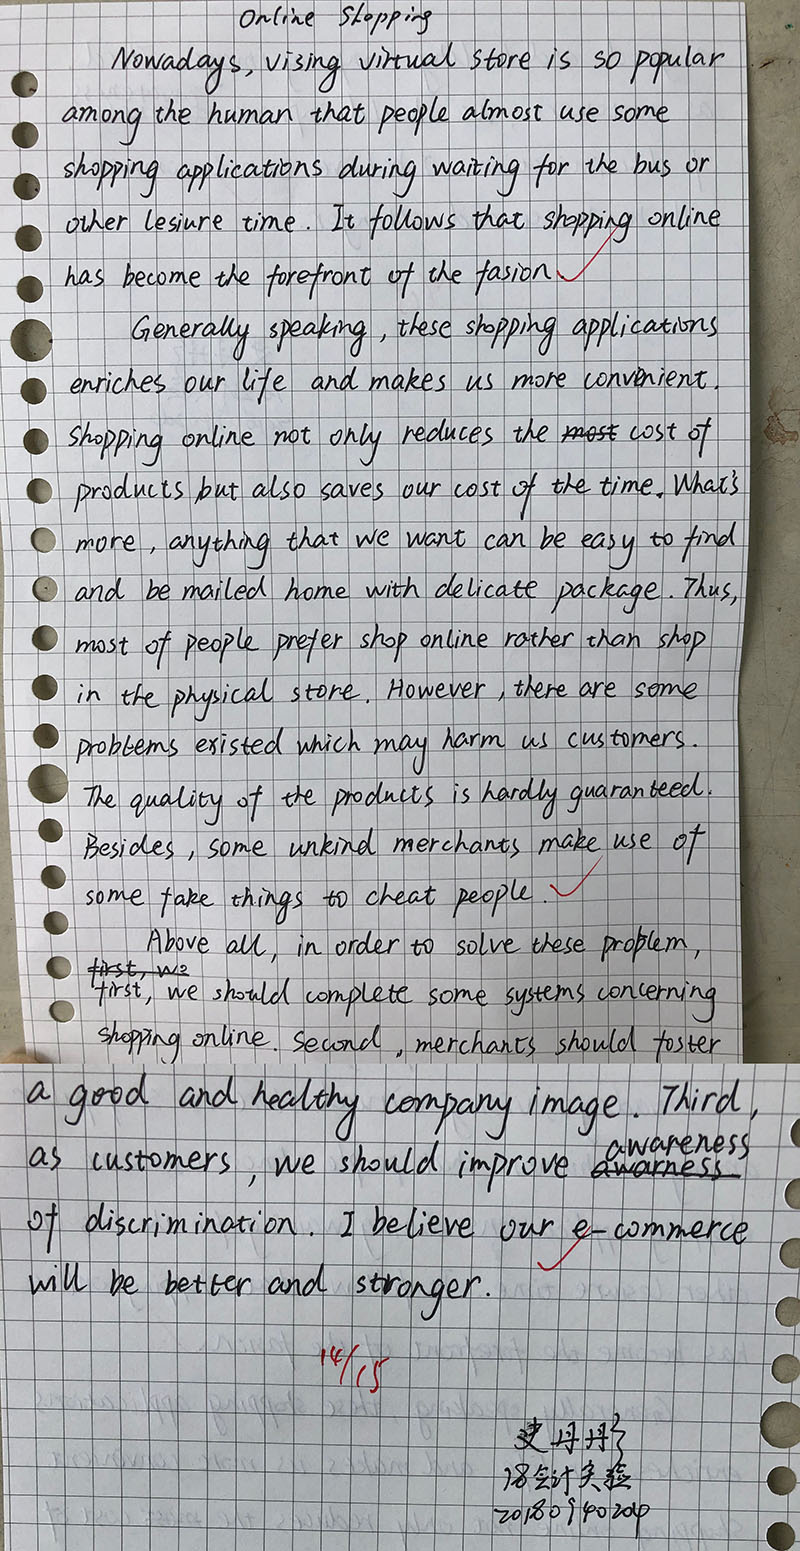 Online Shopping
Nowadays, vising virtual store is so popular
among the human that people almost use some
shopping applications during waiting for the bus or
other lesiure time. It follows that shopping online
has become the forefront of the fasion.
Generally speaking, these shopping applications
enriches our life and makes us more convenient.
Shopping online not only reduces the most cost of
products but also saves our cost of the time. What's
more, anything that we want can be easy to find
and be mailed home with delicate package. Thus,
most of people prefer shop online rather than shop
in the physical store. However, there are some
problems existed which may harm us customers.
The quality of the products is hardly guaranteed.
Besides, some unkind merchants make use of
some fake things to cheat people.
Above all, in order to solve these problem,
first, we
first, we should complete some systems concerning
shopping online. Second, merchants should foster
a good and healthy company image. Third,
awareness
as customers, we should improve awarness
of discrimination. I believe our e-commerce
will be better and stronger.
14/15
史丹丹
18会计实验
20180940204